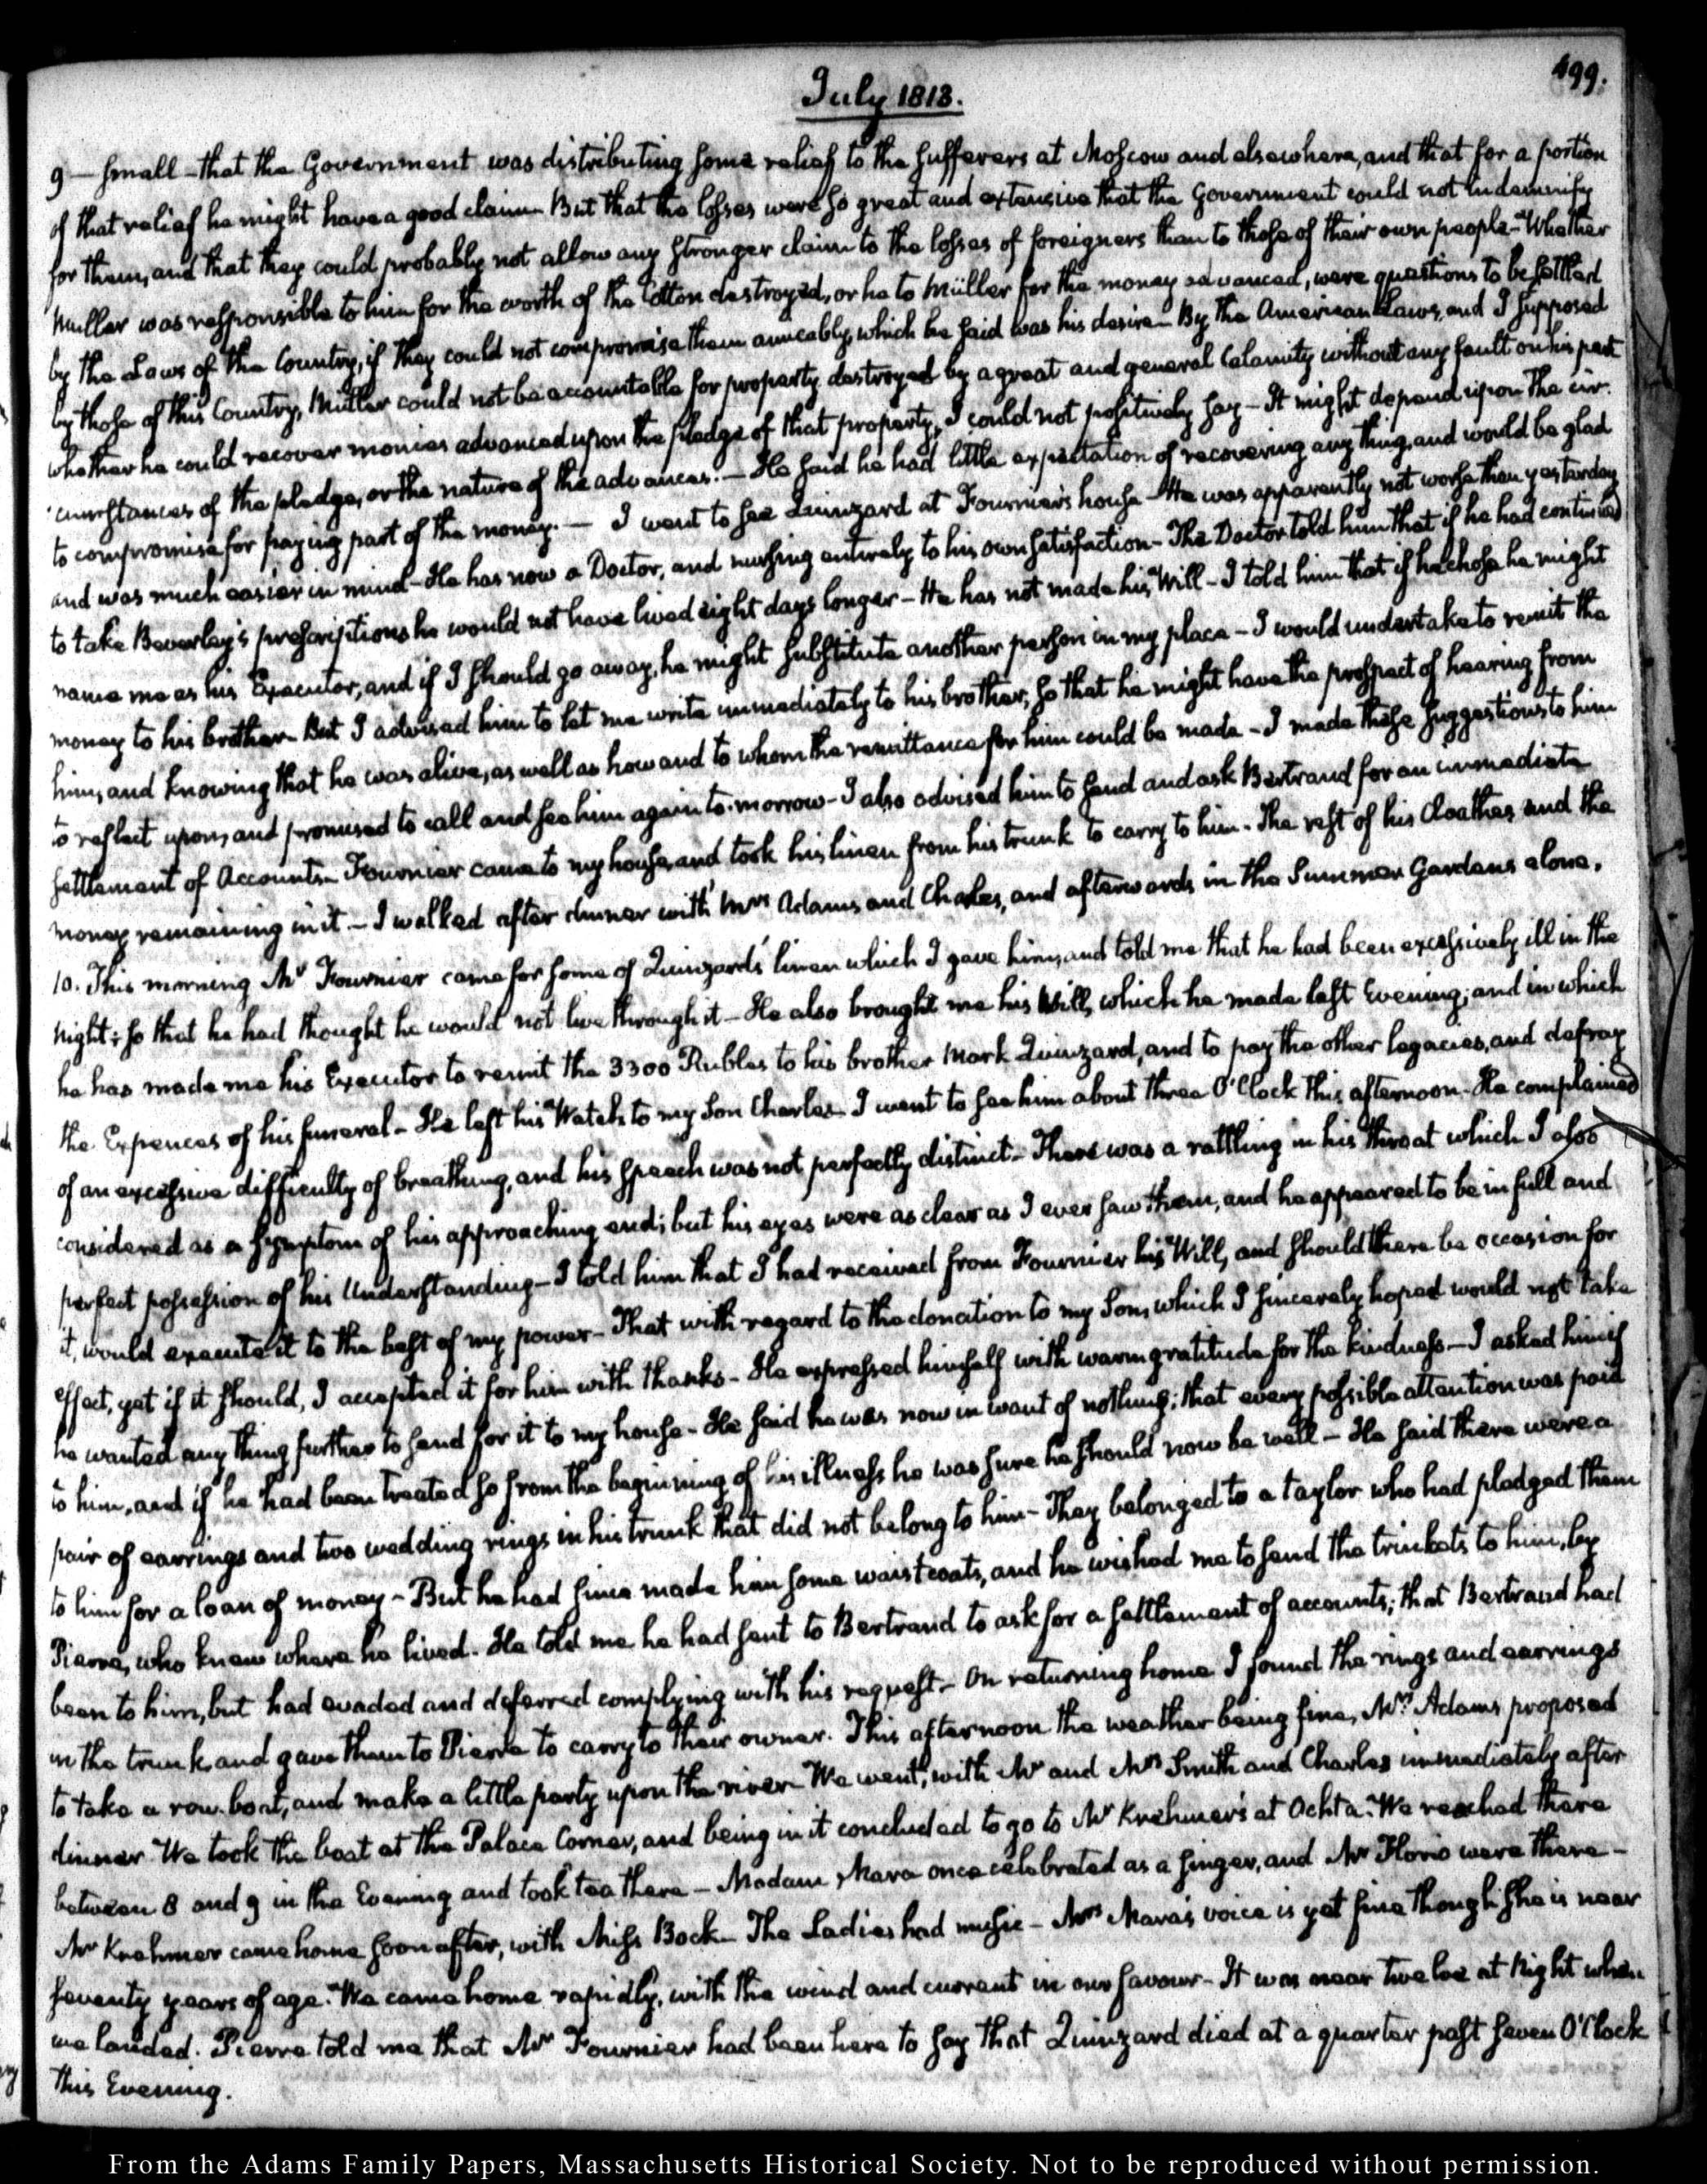 499.
July 1813.
9 — small — that the Government was distributing some relief to the sufferers at Moscow and elsewhere, and that for a portion
of that relief he might have a good claim — But that the losses were so great and extensive that the Government could not indemnify
for them, and that they could probably not allow any stronger claim to the losses of foreigners than to those of their own people — Whether
Müller was responsible to him for the worth of the Cotton destroyed, or he to Müller for the money advanced, were questions to be settled
by the Laws of the Country, if they could not compromise them amicably, which he said was his desire — By the American Laws, and I supposed
by those of this Country, Müller could not be accountable for property destroyed by a great and general Calamity without any fault on his part
whether he could recover monies advanced upon the pledge of that property, I could not positively say — It might depend upon the cir-
-cumstances of the pledge, or the nature of the advances. — He said he had little expectation of recovering any thing, and would be glad
to compromise for paying part of the money. — I went to see Quinzard at Fournier's house — He was apparently not worse than yesterday
and was much easier in mind — He has now a Doctor, and nursing entirely to his own satisfaction — The Doctor told him that if he had continued
to take Beverley's prescriptions he would not have lived eight days longer — He has not made his Will — I told him that if he chose he might
name me as his Executor, and if I should go away, he might substitute another person in my place — I would undertake to remit the
money to his brother — But I advised him to let me write immediately to his brother, so that he might have the prospect of hearing from
him, and knowing that he was alive, as well as how and to whom the remittance for him could be made — I made these suggestions to him
to reflect upon, and promised to call and see him again to-morrow — I also advised him to send and ask Bertrand for an immediate
settlement of Accounts — Fournier came to my house, and took his linen from his trunk to carry to him. The rest of his Cloathes and the
money remaining in it — I walked after dinner with Mrs Adams, and Charles, and afterwards in the Summer Gardens alone.
10. This morning Mr Fournier came for some of Quinzard's linen which I gave him, and told me that he had been excessively ill in the
Night; so that he had thought he would not live through it — He also brought me his Will, which he made last Evening; and in which
he has made me his Executor to remit the 3300 Rubles to his brother Mark Quinzard, and to pay the other legacies, and defray
the Expences of his funeral — He left his Watch to my Son Charles — I went to see him about three O'Clock this afternoon — He complained
of an excessive difficulty of breathing, and his speech was not perfectly distinct — There was a rattling in his throat which I also
considered as a symptom of his approaching end; but his eyes were as clear as I ever saw them, and he appeared to be in full and
perfect possession of his Understanding — I told him that I had received from Fournier his Will, and should there be occasion for
it, would execute it to the best of my power — That with regard to the donation to my Son, which I sincerely hoped would not take
effect, yet if it should, I accepted it for him with thanks — He expressed himself with warm gratitude for the kindness — I asked him if
he wanted any thing further to send for it to my house — He said he was now in want of nothing; that every possible attention was paid
to him, and if he had been treated so from the beginning of his illness he was sure he should now be well — He said there were a
pair of earrings and two wedding rings in his trunk that did not belong to him — They belonged to a taylor who had pledged them
to him for a loan of money — But he had since made him some waistcoats, and he wished me to send the trinkets to him, by
Pierre, who knew where he lived. He told me he had sent to Bertrand to ask for a settlement of accounts; that Bertrand had
been to him, but had evaded and deferred complying with his request — On returning home I found the rings and earrings
in the trunk, and gave them to Pierre to carry to their owner. This afternoon the weather being fine, Mrs Adams proposed
to take a row-boat, and make a little party upon the river — We went, with Mr and Mrs Smith and Charles immediately after
dinner. We took the boat at the Palace Corner, and being in it concluded to go to Mr Krehmer's at Ochta. We reached there
between 8 and 9 in the Evening and took tea there — Madam Mara once celebrated as a singer, and Mr Florio were there —
Mr Krehmer came home soon after, with Miss Bock — The Ladies had music — Mrs Mara's voice is yet fine though she is near
seventy years of age. We came home rapidly, with the wind and current in our favour — It was near twelve at Night when
we landed. Pierre told me that Mr Fournier had been here to say that Quinzard died at a quarter past seven O'Clock
this Evening.
From the Adams Family Papers, Massachusetts Historical Society. Not to be reproduced without permission.